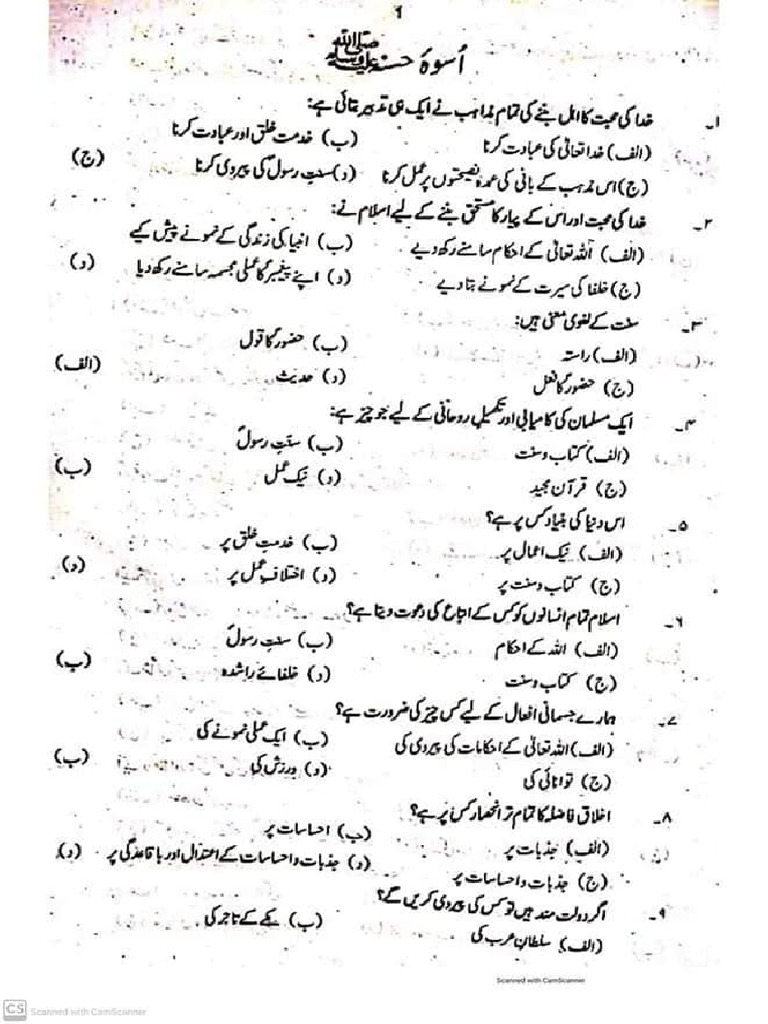 1
اُسوۂ حسنہ ﷺ
۱۔ خدا کی محبت کا اہل بننے کی تمام مذاہب نے ایک ہی تدبیر بتائی ہے:
(الف) خدا تعالیٰ کی عبادت کرنا (ب) خدمت خلق اور عبادت کرنا
(ج) اس مذہب کے بانی کی عمدہ نصیحتوں پر عمل کرنا (د) سنتِ رسولؐ کی پیروی کرنا (ج)
۲۔ خدا کی محبت اور اس کے پیار کا مستحق بننے کے لیے اسلام نے:
(الف) اللہ تعالیٰ کے احکام سامنے رکھ دیے (ب) انبیا کی زندگی کے نمونے پیش کیے
(ج) خلفا کی سیرت کے نمونے بتا دیے (د) اپنے پیغمبر کا عملی مجسمہ سامنے رکھ دیا (د)
۳۔ سنت کے لغوی معنی ہیں:
(الف) راستہ (ب) حضورؐ کا قول
(ج) حضورؐ کا فعل (د) حدیث (الف)
۴۔ ایک مسلمان کی کامیابی اور تکمیلِ روحانی کے لیے جو چیز ہے:
(الف) کتاب و سنت (ب) سنتِ رسولؐ
(ج) قرآن مجید (د) نیک عمل (ب)
۵۔ اس دنیا کی بنیاد کس پر ہے؟
(الف) نیک اعمال پر (ب) خدمتِ خلق پر
(ج) کتاب و سنت پر (د) اختلافِ عمل پر (د)
۶۔ اسلام تمام انسانوں کو کس کے اتباع کی دعوت دیتا ہے؟
(الف) اللہ کے احکام (ب) سنتِ رسولؐ
(ج) کتاب و سنت (د) خلفائے راشدہ (ب)
۷۔ ہمارے جسمانی افعال کے لیے کس چیز کی ضرورت ہے؟
(الف) اللہ تعالیٰ کے احکامات کی پیروی کی (ب) ایک عملی نمونے کی
(ج) توانائی کی (د) ورزش کی (ب)
۸۔ اخلاقِ فاضلہ کا تمام تر انحصار کس پر ہے؟
(الف) جذبات پر (ب) احساسات پر
(ج) جذبات و احساسات پر (د) جذبات و احساسات کے اعتدال اور باقاعدگی پر (د)
۹۔ اگر دولت مند ہیں تو کس کی پیروی کریں گے؟
(الف) سلطانِ عرب کی (ب) مکے کے تاجر کی
Scanned with CamScanner
CS Scanned with CamScanner